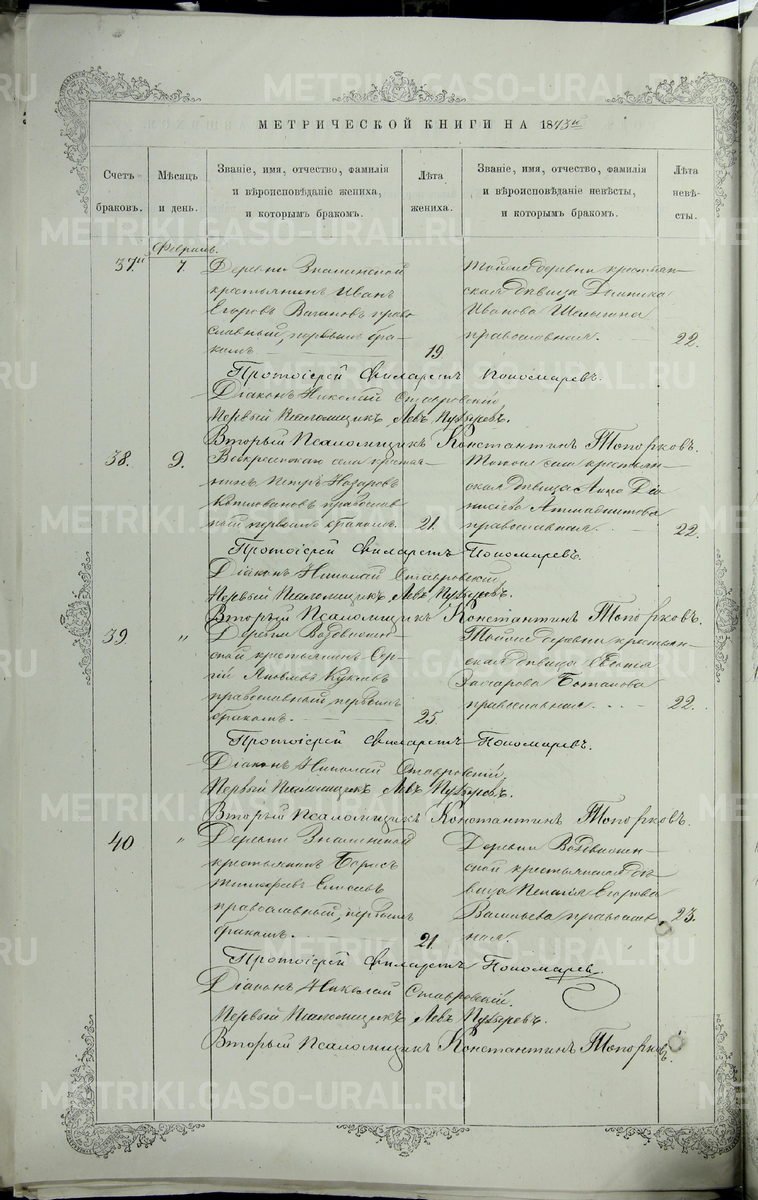 МЕТРИЧЕСКОЙ КНИГИ НА 1873й
Счетъ браковъ.
Мѣсяцъ и день.
Званіе, имя, отчество, фамилія и вѣроисповѣданіе жениха, и которымъ бракомъ.
Лѣта жениха.
Званіе, имя, отчество, фамилія и вѣроисповѣданіе невѣсты, и которымъ бракомъ.
Лѣта невѣсты.
Февраль.
37.й 7. Деревни Знаменской
крестьянинъ Иванъ
Егоровъ Вагановъ право
славный, первымъ бра-
комъ 19
Тойже деревни крестьян-
ская дѣвица
Иванова
православная. 22.
Протоіерей Филаретъ Пономаревъ.
Діаконъ Николай Ставровскій
Первый Псаломщикъ Левъ Пузыревъ.
Второй Псаломщикъ Константинъ Топорковъ.
38. 9. Воскресенскаго села крестья-
нинъ Петръ Назаровъ
православ
ный первымъ бракомъ. 21.
Тогоже села крестьян-
ская дѣвица Анна
православная 22.
Протоіерей Филаретъ Пономаревъ.
Діаконъ Николай Ставровскій
Первый Псаломщикъ Левъ Пузыревъ.
Второй Псаломщикъ Константинъ Топорковъ.
39 " Деревни Воздвижен-
ской крестьянинъ Сер-
гій Яковлевъ
православный, первымъ
бракомъ. 25.
Тойже деревни крестьян-
ская дѣвица
Захарова
православная. 22.
Протоіерей Филаретъ Пономаревъ.
Діаконъ Николай Ставровскій
Первый Псаломщикъ Левъ Пузыревъ.
Второй Псаломщикъ Константинъ Топорковъ.
40 " Деревни Знаменской
крестьянинъ Борисъ
Тимофеевъ
православный, первымъ
бракомъ. 21.
Деревни Воздвижен-
ской крестьянская дѣ-
вица Пелагія Егорова
Васильева православ 23.
ная.
Протоіерей Филаретъ Пономаревъ.
Діаконъ Николай Ставровскій.
Первый Псаломщикъ Левъ Пузыревъ.
Второй Псаломщикъ Константинъ Топорковъ.
METRIKI.GASO-URAL.RU